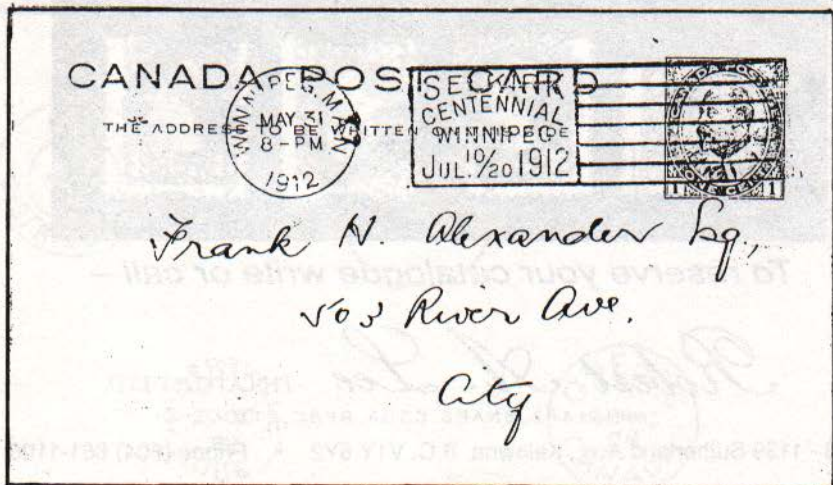 CANADA POST CARD
THE ADDRESS TO BE WRITTEN ON THIS SIDE
WINNIPEG, MAN
MAY 31
8-PM
1912
SELKIRK
CENTENNIAL
WINNIPEG
JUL. 10/20 1912
1 1
Frank H. Alexander Esq,
503 River Ave.
City
To reserve your catalogue write or call –
1139 Sutherland Ave., Kelowna, B.C. V1Y 5Y2 • Phone (604) 861-1106